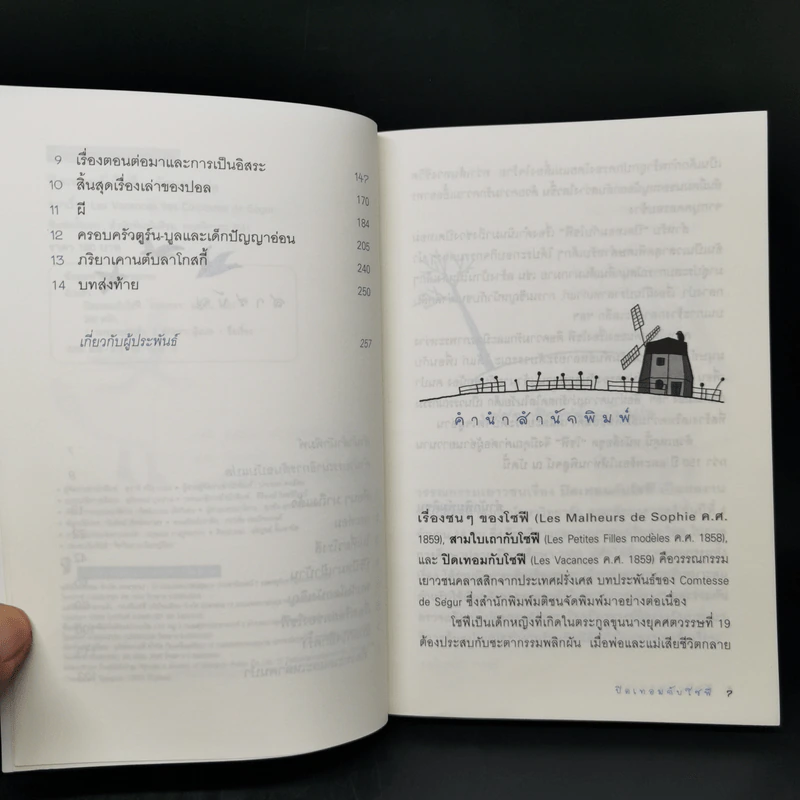 9 เรื่องตอนต่อมาและการเป็นอิสระ 147
10 สิ้นสุดเรื่องเล่าของปอล 170
11 ผี 184
12 ครอบครัวตูร์น-บูลและเด็กปัญญาอ่อน 205
13 ภริยาเคานต์บลาโกสกี้ 240
14 บทส่งท้าย 250
เกี่ยวกับผู้ประพันธ์ 257
คำนำสำนักพิมพ์
เรื่องซนๆ ของโซฟี (Les Malheurs de Sophie ค.ศ.
1859), สามใบเถากับโซฟี (Les Petites Filles modèles ค.ศ. 1858),
และ ปิดเทอมกับโซฟี (Les Vacances ค.ศ. 1859) คือวรรณกรรม
เยาวชนคลาสสิกจากประเทศฝรั่งเศส บทประพันธ์ของ Comtesse
de Ségur ซึ่งสำนักพิมพ์มติชนจัดพิมพ์มาอย่างต่อเนื่อง
โซฟีเป็นเด็กหญิงที่เกิดในตระกูลขุนนางยุคศตวรรษที่ 19
ต้องประสบกับชะตากรรมพลิกผัน เมื่อพ่อและแม่เสียชีวิตกลาย
ปิดเทอมกับโซฟี 7